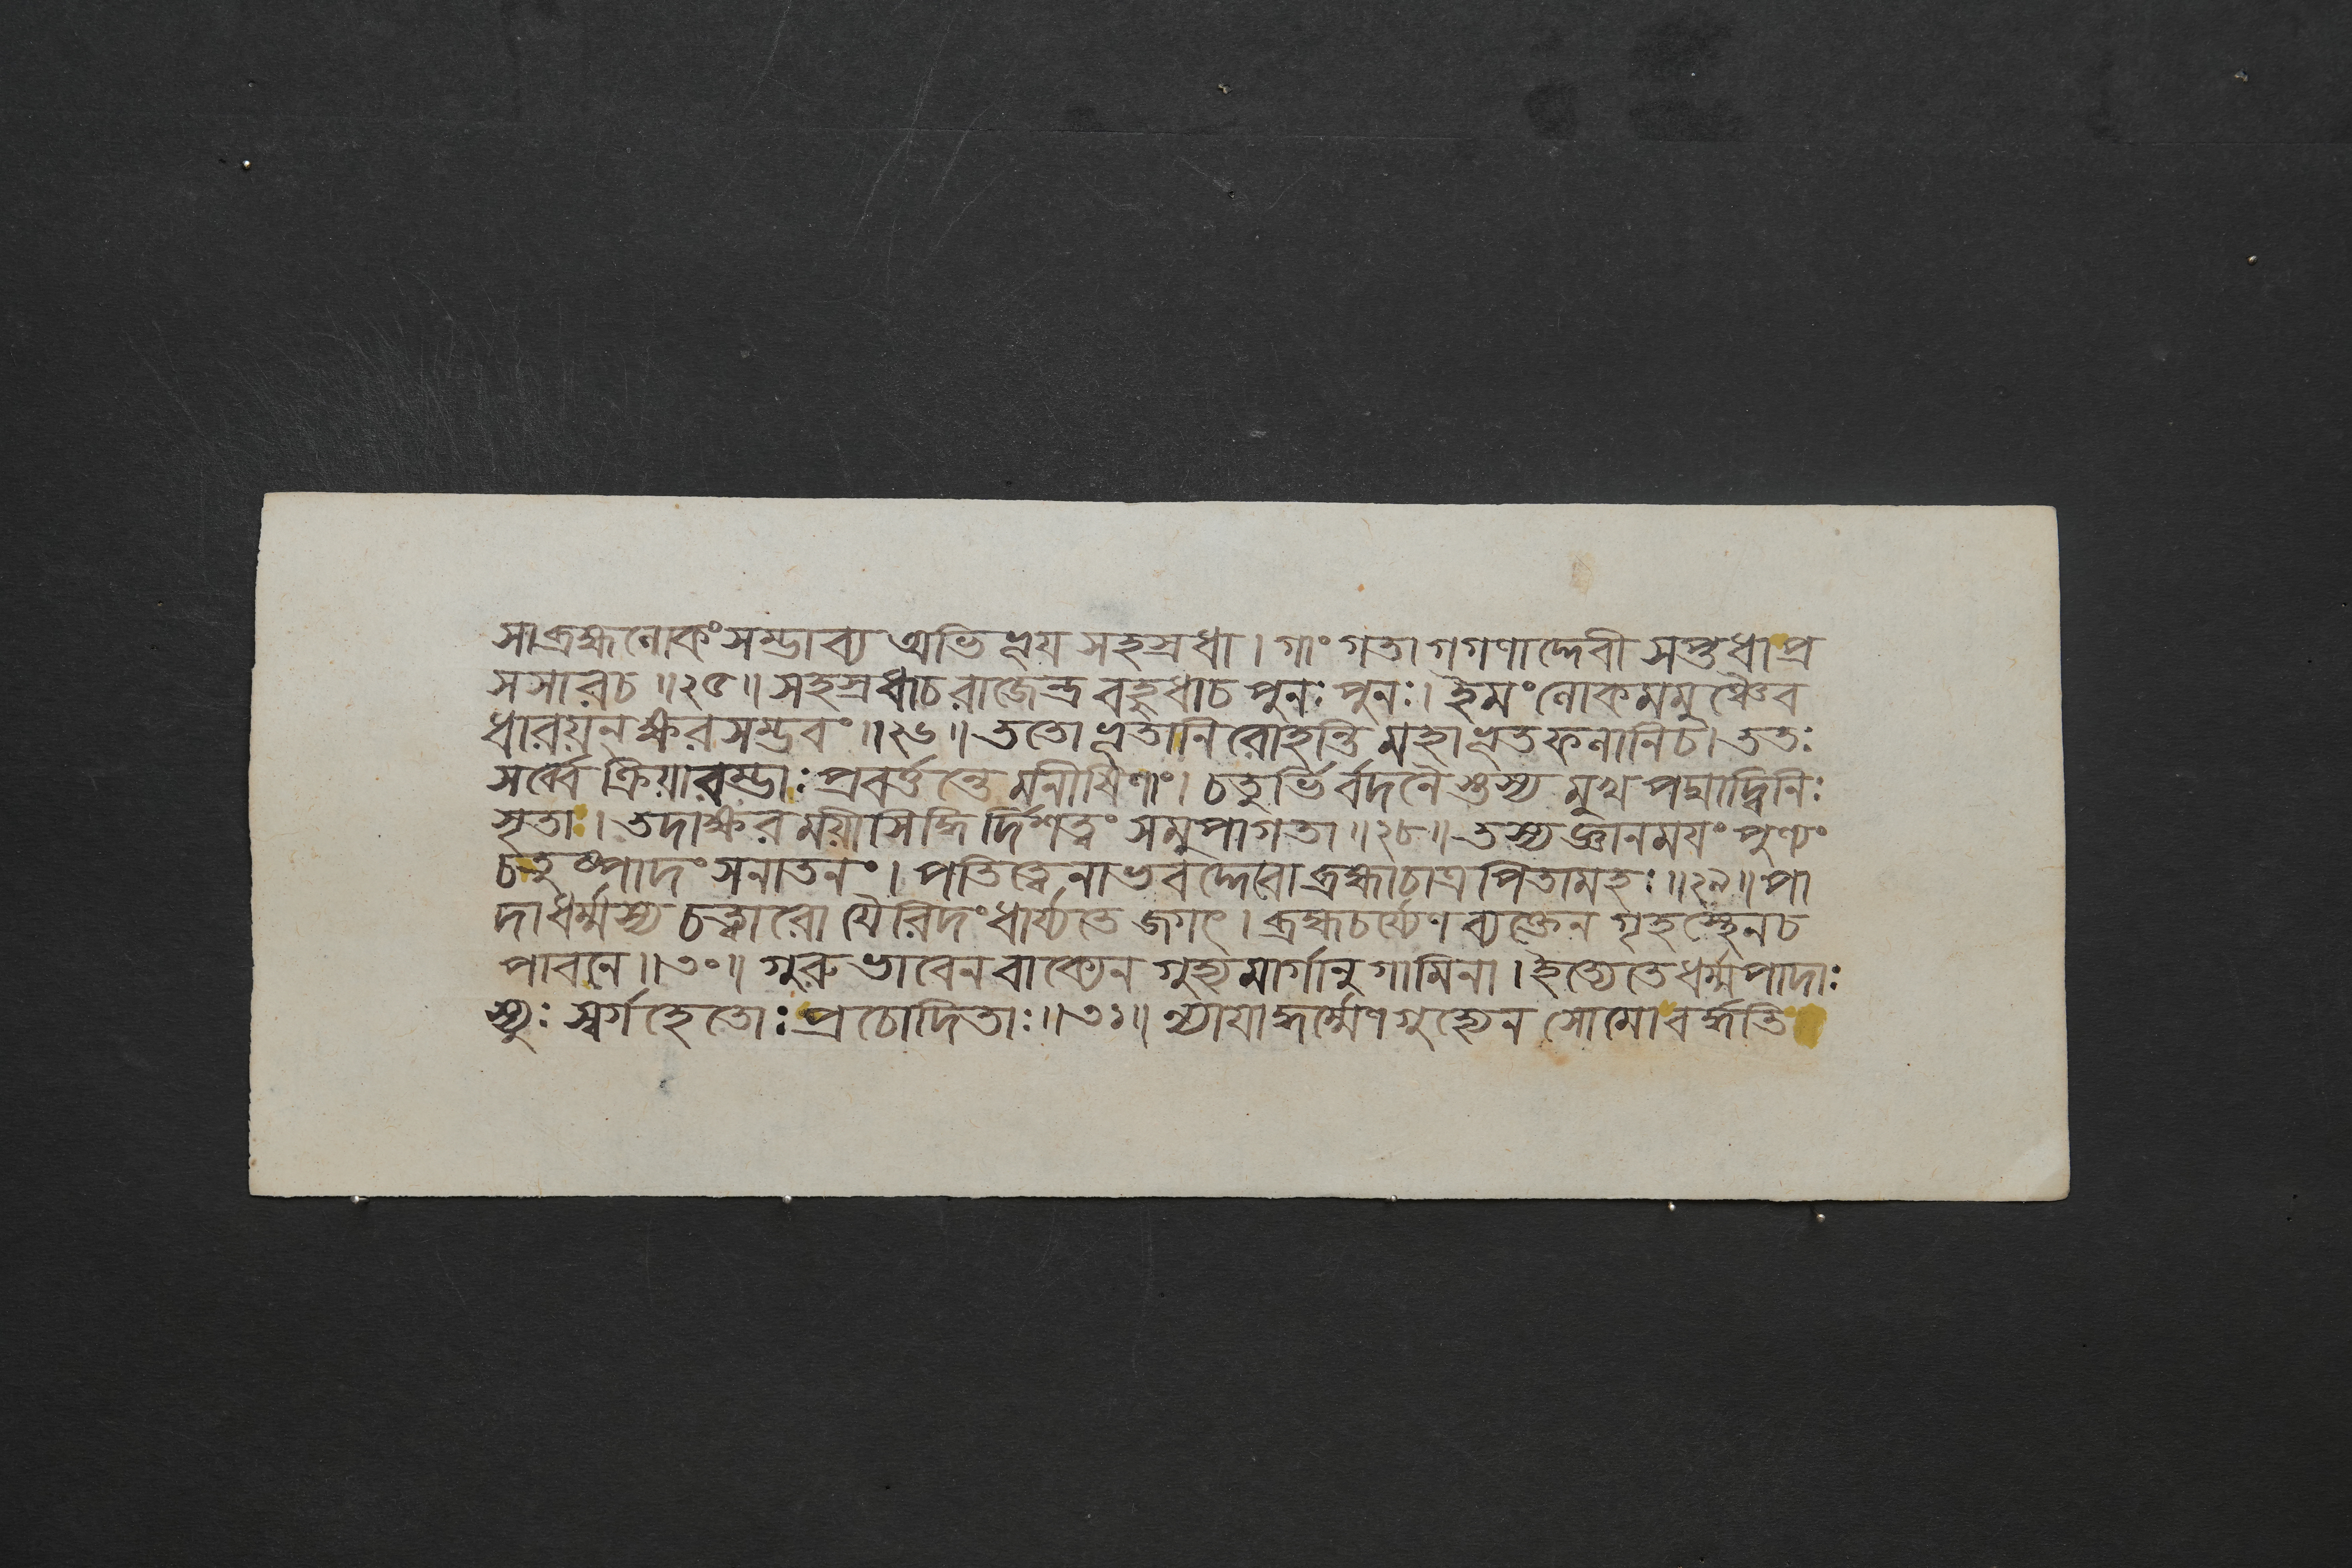 সাব্রহ্মলোকংসম্ভাব্য অভিভূয় সহস্রধা। গাং গতা গগণাদ্দেবী সপ্তধাপ্র
সসারচ॥২৫॥ সহস্রধাচ রাজেন্দ্র বহুধাচ পুনঃ পুনঃ। ইমং লোকমমুঞ্চৈব
ধারয়নক্ষরসম্ভবং॥২৬॥ ততো ভূতানি রোহন্তি মহাভূতফলানিচ। ততঃ
সর্ব্বে ক্রিয়ারম্ভাঃ প্রবর্ত্তন্তে মনীষিণাং। চতুর্ভির্বদনৈস্তস্য মুখ পদ্মাদ্বিনিঃ
সৃতা। তদাক্ষরময়ী সিদ্ধির্দ্দিশত্বং সমুপাগতা॥২৮॥ তস্য জ্ঞানময়ং পুণ্যং
চতুষ্পাদং সনাতনং। পতিত্বেনাভবদ্দেবো ব্রহ্মাচাত্র পিতামহঃ॥২৯॥ পা
দাধর্ম্মস্য চত্বারো যৈরিদং ধার্য্যতে জগৎ। ব্রহ্মচর্য্যেণ ব্যক্তেন গৃহস্থেনচ
পাবনে॥৩০॥ গুরুভাবেন বাক্যেন গুহ্যমার্গানুগামিনা। ইত্যেতে ধর্ম্মপাদাঃ
স্যুঃ স্বর্গহেতোঃ প্রচোদিতাঃ॥৩১॥ ন্যায়াদ্ধর্ম্মেণ গুহ্যেন সোমো বর্দ্ধতি